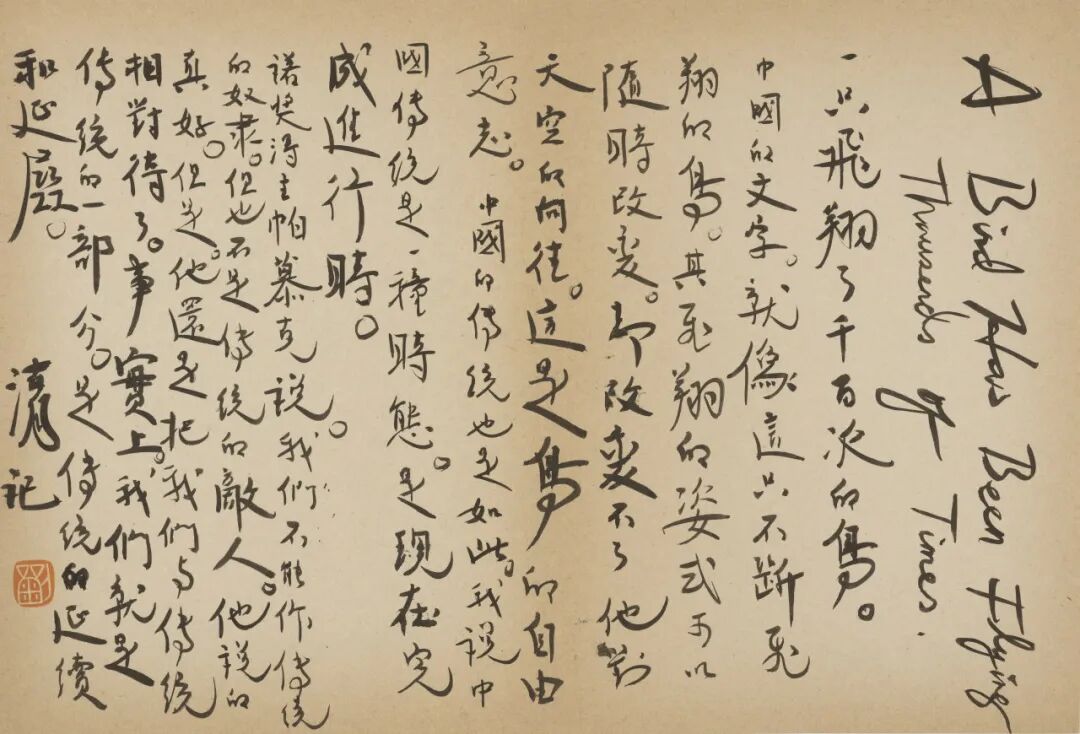 A Bird Has Been Flying
Thousands of Times.
一只飛翔了千百次的鳥。
中國的文字。就像這只不斷飛
翔的鳥。其飛翔的姿式可以
隨時改变。却改变不了他對
天空的向往。這是鳥的自由
意志。中國的傳统也是如此。我説中
國傳统是一種時態。是現在完
成進行時。
諾奖得主帕慕克説。我們不能作傳统
的奴隶。但也不是傳统的敵人。他説的
真好。但是。他還是把我们与傳统
相對待了。事實上。我們就是
傳统的一部分。是傳统的延續
和延展。
记